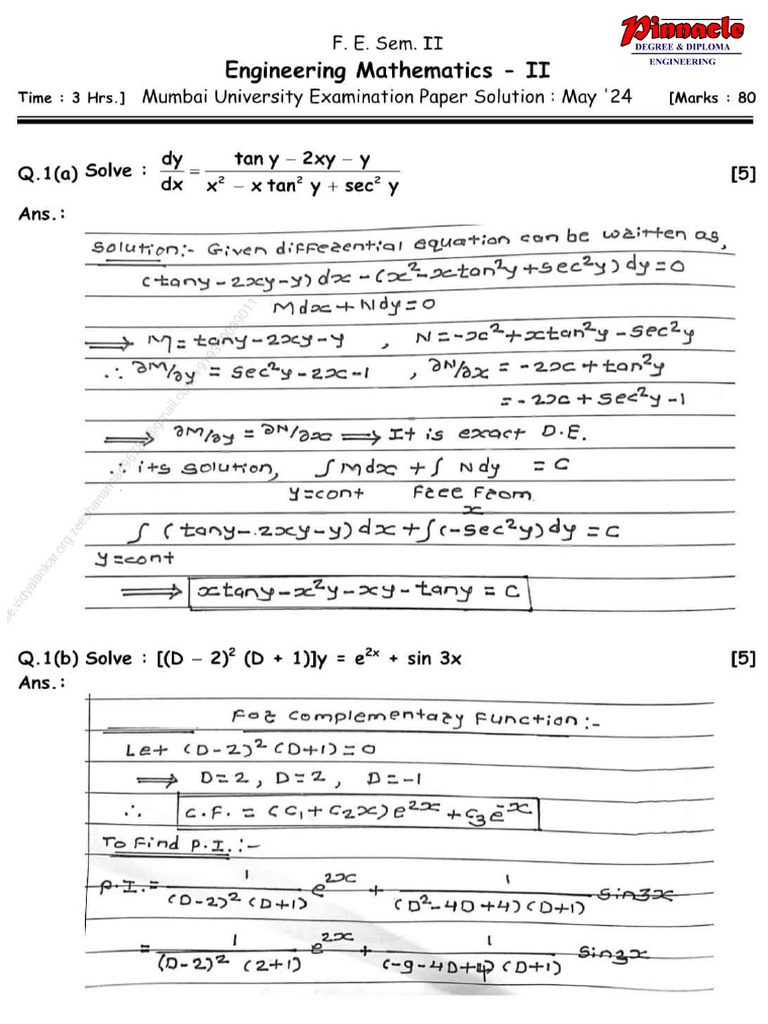 Pinnacle
DEGREE & DIPLOMA
ENGINEERING
F. E. Sem. II
Engineering Mathematics - II
Time : 3 Hrs.] Mumbai University Examination Paper Solution : May '24 [Marks : 80
Q.1(a) Solve : dy/dx = (tan y − 2xy − y)/(x² − x tan² y + sec² y) [5]
Ans.:
Solution:- Given differential equation can be written as,
(tany-2xy-y)dx-(x²-xtan²y+sec²y)dy=0
Mdx+Ndy=0
⟹ M=tany-2xy-y , N=-x²+xtan²y-sec²y
∴ ∂M/∂y = sec²y-2x-1 , ∂N/∂x = -2x+tan²y
= -2x+sec²y-1
⟹ ∂M/∂y = ∂N/∂x ⟹ It is exact D.E.
∴ its solution, ∫Mdx + ∫Ndy = C
y=cont free from
x
∫(tany-2xy-y)dx+∫(-sec²y)dy=C
y=cont
⟹ xtany-x²y-xy-tany = C
Q.1(b) Solve : [(D − 2)² (D + 1)]y = e²ˣ + sin 3x [5]
Ans.:
For complementary Function:-
Let (D-2)²(D+1)=0
⟹ D=2, D=2, D=-1
∴ C.F. = (C₁+C₂x)e²ˣ+C₃e⁻ˣ
To Find P.I.:-
P.I.= 1/((D-2)²(D+1)) e²ˣ + 1/((D²-4D+4)(D+1)) sin3x
= 1/((D-2)² (2+1)) e²ˣ + 1/((-9-4D+4)(D+1)) sin3x